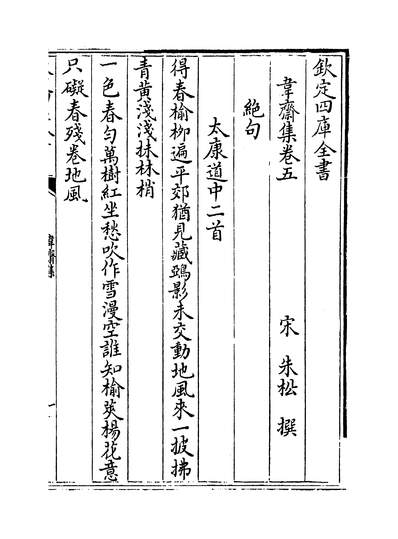 欽定四庫全書
韋齋集卷五
宋 朱松 撰
絶句
太康道中二首
得春榆柳遍平郊猶見藏鴉影未交動地風來一披拂
青黄淺淺抹林梢
一色春匀萬樹紅坐愁吹作雪漫空誰知榆莢楊花意
只礙春殘卷地風
韋齋集
一